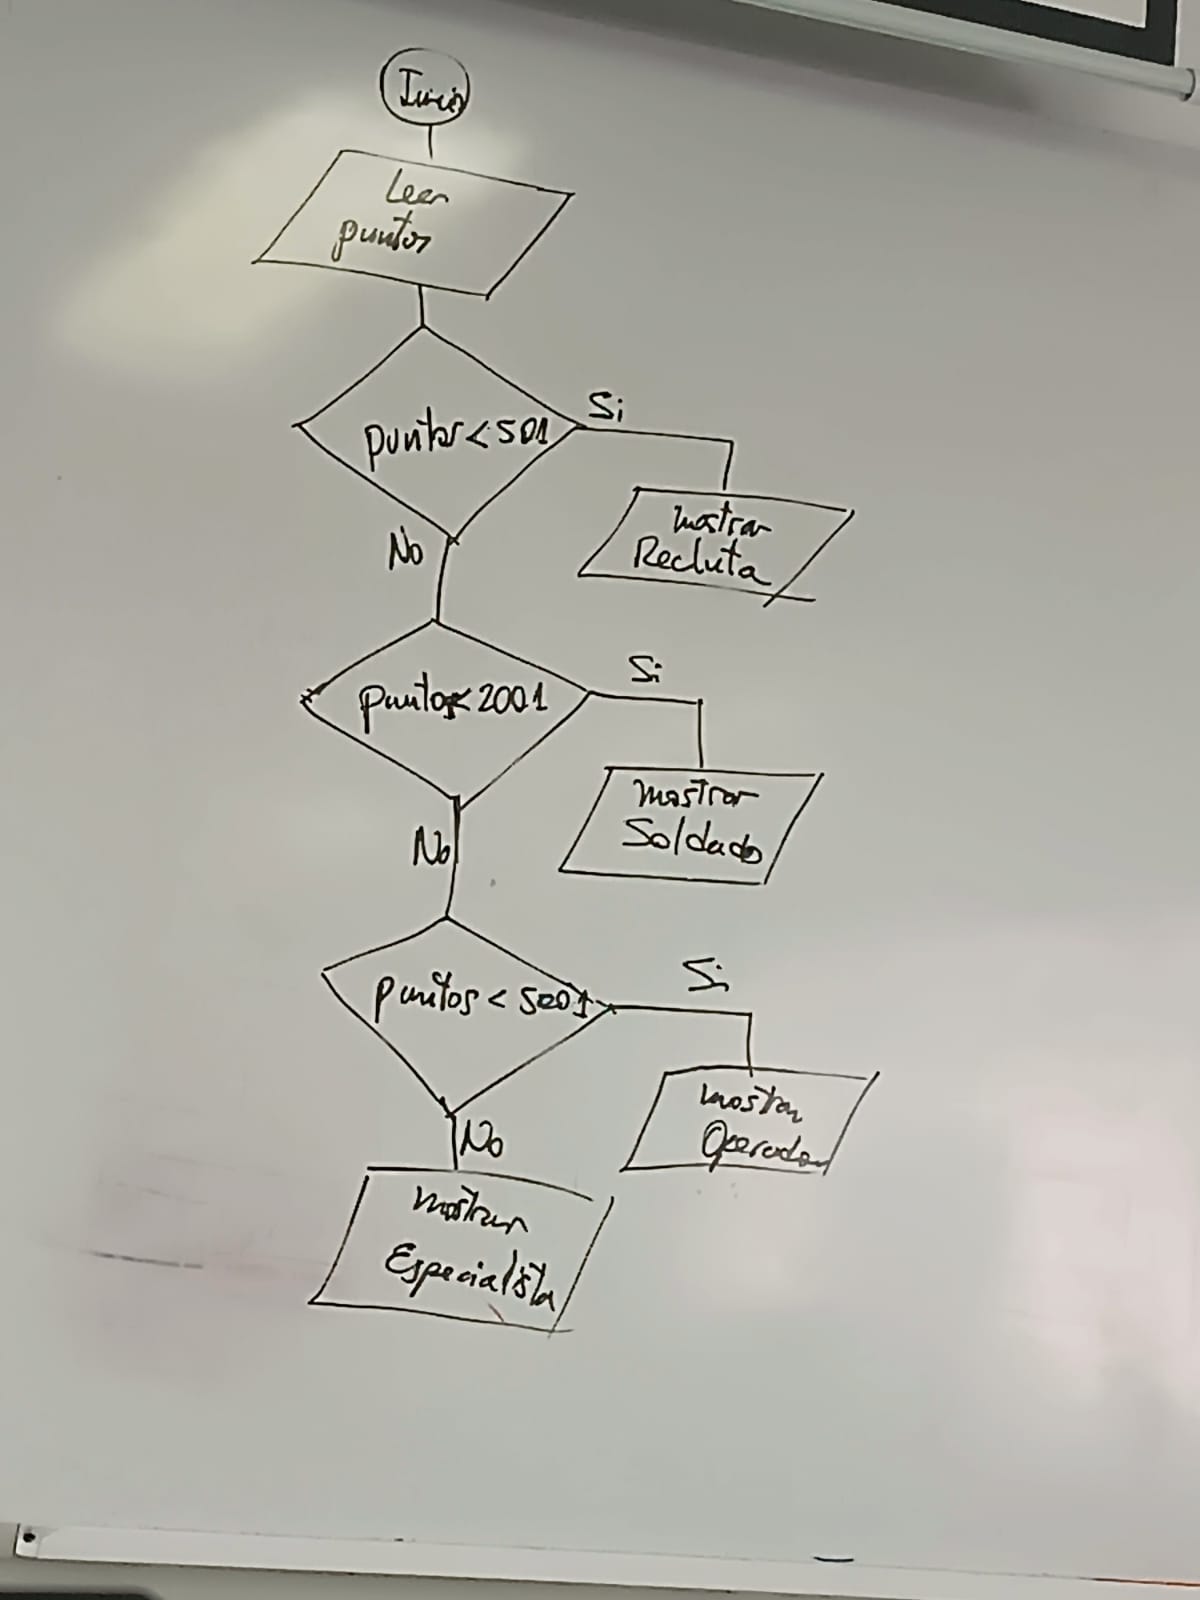 Inicio
Leer
puntos
puntos < 501
Si
mostrar
Recluta
No
puntos < 2001
Si
mostrar
Soldado
No
puntos < 5001
Si
mostrar
Operador
No
mostrar
Especialista